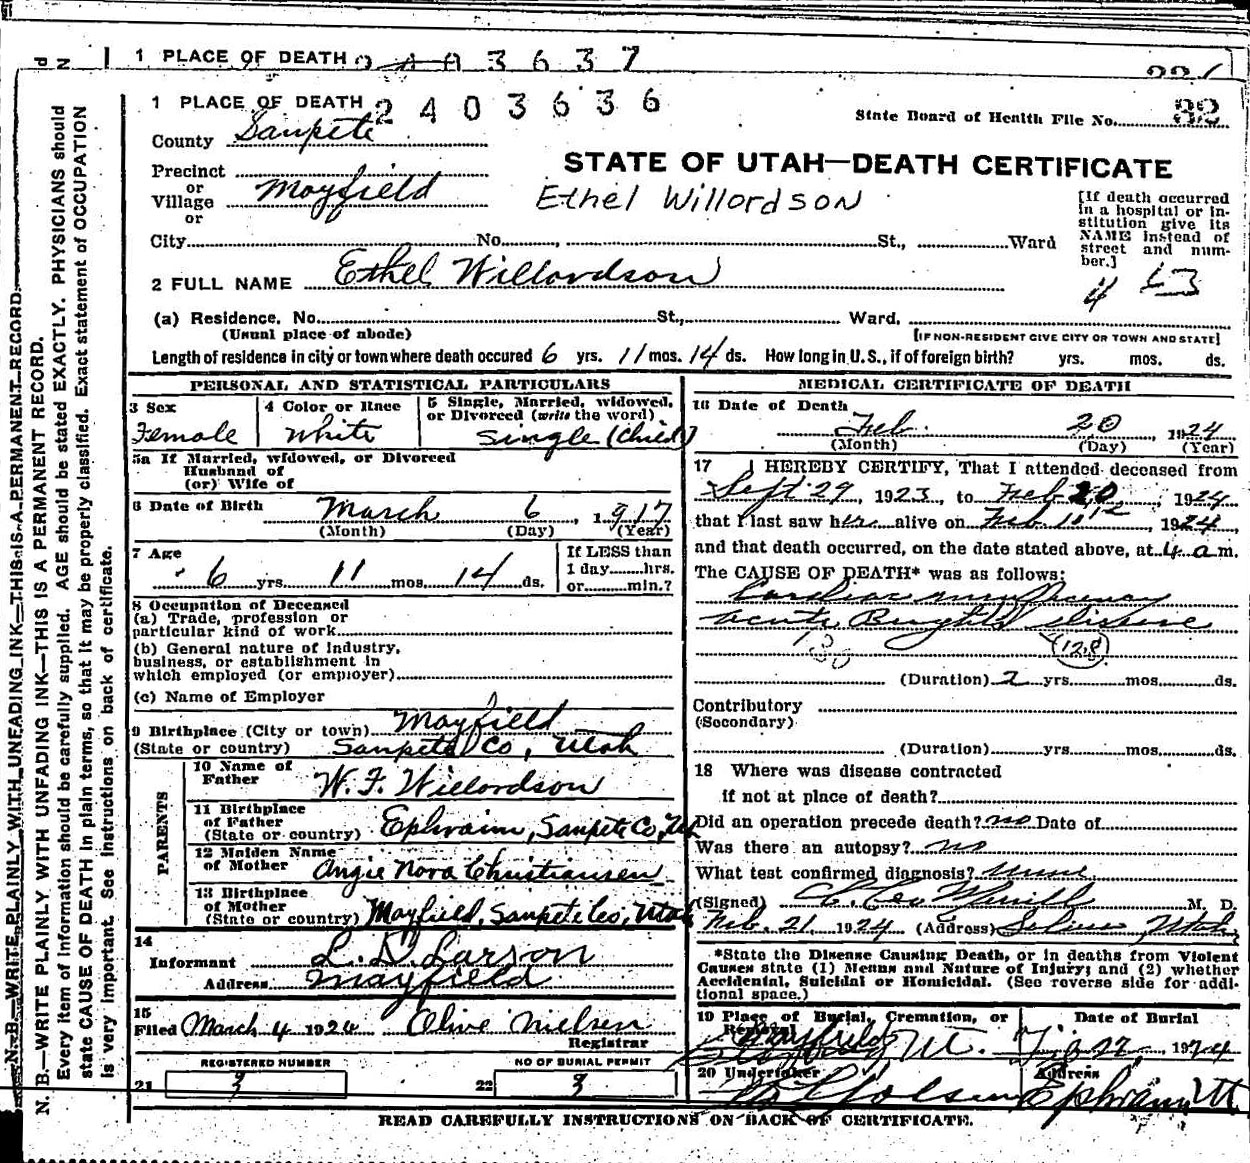 1 PLACE OF DEATH 3637
1 PLACE OF DEATH 2403636
State Board of Health File No. 82
County Sanpete
STATE OF UTAH—DEATH CERTIFICATE
Precinct
or
Village Mayfield
or
Ethel Willordson
[If death occurred in a hospital or institution give its NAME instead of street and number.]
City No. , St., Ward
2 FULL NAME Ethel Willardson
(a) Residence. No. St., Ward,
(Usual place of abode) [IF NON-RESIDENT GIVE CITY OR TOWN AND STATE]
Length of residence in city or town where death occured 6 yrs. 11 mos. 14 ds. How long in U.S., if of foreign birth? yrs. mos. ds.
PERSONAL AND STATISTICAL PARTICULARS
3 Sex
Female
4 Color or Race
White
5 Single, Married, widowed,
or Divorced (write the word)
Single (Child)
5a If Married, widowed, or Divorced
Husband of
(or) Wife of
6 Date of Birth March 6, 1917
(Month) (Day) (Year)
7 Age
6 yrs. 11 mos. 14 ds.
If LESS than
1 day hrs.
or min.?
8 Occupation of Deceased
(a) Trade, profession or
particular kind of work
(b) General nature of Industry,
business, or establishment in
which employed (or employer)
(c) Name of Employer
9 Birthplace (City or town) Mayfield
(State or country) Sanpete Co, Utah
PARENTS
10 Name of
Father W. F. Willardson
11 Birthplace
of Father
(State or country) Ephraim, Sanpete Co, Ut
12 Maiden Name
of Mother Angie Nora Christiansen
13 Birthplace
of Mother
(State or country) Mayfield, Sanpete Co, Utah
14
Informant L. D. Larson
Address Mayfield
15
Filed March 4 1924 Olive Nielsen
Registrar
REGISTERED NUMBER
21 3
NO OF BURIAL PERMIT
22 3
MEDICAL CERTIFICATE OF DEATH
16 Date of Death
Feb. 20, 1924
(Month) (Day) (Year)
17 I HEREBY CERTIFY, That I attended deceased from
Sept 29, 1923, to Feb 20, 1924
that I last saw her alive on Feb 10, 1924,
and that death occurred, on the date stated above, at 4 a m.
The CAUSE OF DEATH* was as follows:
Cardiac insufficiency
acute Brights disease
(128)
(Duration) 2 yrs. mos. ds.
Contributory
(Secondary)
(Duration) yrs. mos. ds.
18 Where was disease contracted
if not at place of death?
Did an operation precede death? no Date of
Was there an autopsy? no
What test confirmed diagnosis?
(Signed) Merrill M. D.
Feb. 21 1924 (Address) Salina Utah
*State the Disease Causing Death, or in deaths from Violent
Causes state (1) Means and Nature of Injury; and (2) whether
Accidental, Suicidal or Homicidal. (See reverse side for addi-
tional space.)
19 Place of Burial, Cremation, or
Removal
Mayfield Ut.
Date of Burial
Feb 22, 1924
20 Undertaker
Address
Ephraim Ut
READ CAREFULLY INSTRUCTIONS ON BACK OF CERTIFICATE.
N. B.—WRITE PLAINLY WITH UNFADING INK—THIS IS A PERMANENT RECORD.
N. B.—WRITE PLAINLY WITH UNFADING INK—THIS IS A PERMANENT RECORD.
Every item of information should be carefully supplied. AGE should be stated EXACTLY. PHYSICIANS should
state CAUSE OF DEATH in plain terms, so that it may be properly classified. Exact statement of OCCUPATION
is very important. See instructions on back of certificate.